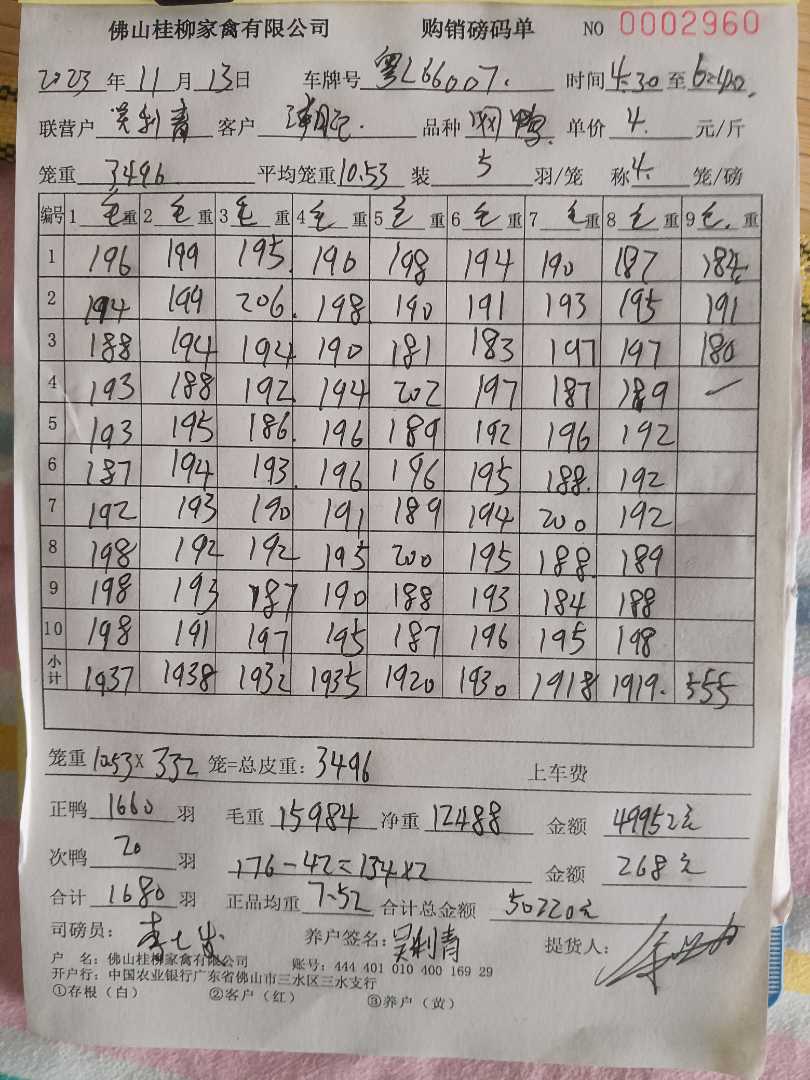 佛山桂柳家禽有限公司 购销磅码单 NO 0002960
2023年11月13日 车牌号 粤L66007. 时间4:30至6:40
联营户 吴利青 客户 品种 鸭 单价 4. 元/斤
笼重 3496 平均笼重10.53 装 5 羽/笼 称4. 笼/磅
编号 1 毛重 2 毛重 3 毛重 4 毛重 5 毛重 6 毛重 7 毛重 8 毛重 9 毛重
1 196 199 195 190 198 194 190 187 184
2 194 199 206 198 190 191 193 195 191
3 188 194 194 190 181 183 197 197 180
4 193 188 192 194 202 197 187 189 —
5 193 195 186 196 189 192 196 192
6 187 194 193 196 196 195 188 192
7 192 193 190 191 189 194 200 192
8 198 192 192 195 200 195 188 189
9 198 193 187 190 188 193 184 188
10 198 191 197 195 187 196 195 198
小计 1937 1938 1932 1935 1920 1930 1918 1919 555
笼重10.53×332笼=总皮重:3496 上车费
正鸭 1660 羽 毛重 15984 净重 12488 金额 49952元
次鸭 20 羽 176-42=134×2 金额 268元
合计 1680 羽 正品均重 7.52 合计总金额 50220元
司磅员: 养户签名:吴利青 提货人:
户 名:佛山桂柳家禽有限公司 账号:444 401 010 400 169 29
开户行:中国农业银行广东省佛山市三水区三水支行
①存根(白) ②客户(红) ③养户(黄)